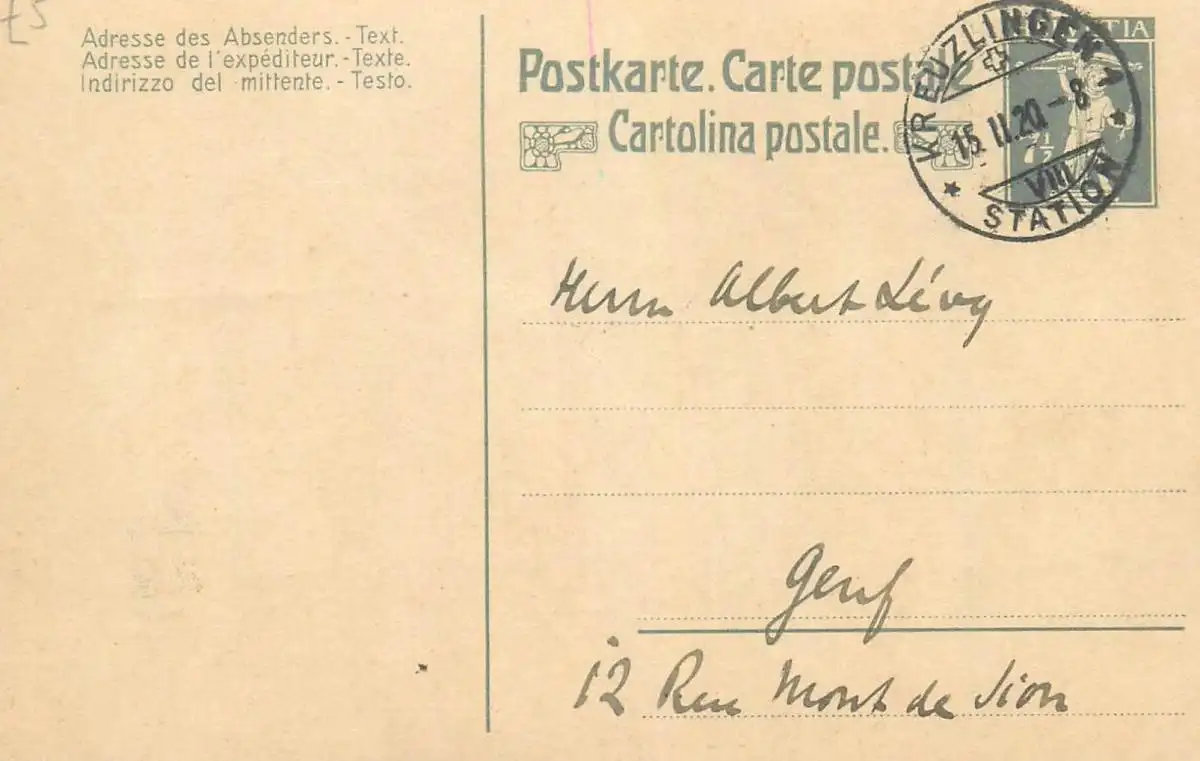 £5
Adresse des Absenders. - Text.
Adresse de l'expéditeur. - Texte.
Indirizzo del mittente. - Testo.
Postkarte. Carte postale
Cartolina postale.
HELVETIA
7½
KREUZLINGEN 1
15. II. 20. - 8
VIII
STATION
Herrn Albert Lévy
Genf
12 Rue Mont de Sion